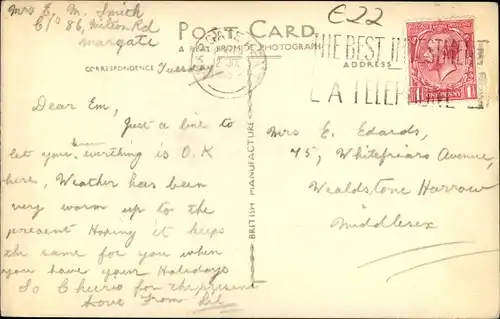 Mrs E. M. Smith
C/o 86, Milton Rd
Margate
POST CARD.
A REAL PHOTOGRAPH
£22
CORRESPONDENCE
Tuesday
MARGATE
ADDRESS
THE BEST INVESTMENT
A TELEPHONE
ONE PENNY
Dear Em,
Just a line to
let you know everthing is O.K
here, Weather has been
very warm up to the
present Hoping it keeps
the same for you when
you have your Holidays
So Cheerio for the present
Love From Lil
BRITISH MANUFACTURE
Mrs E. Edards,
45, Whitefriars Avenue,
Wealdstone Harrow
Middlesex